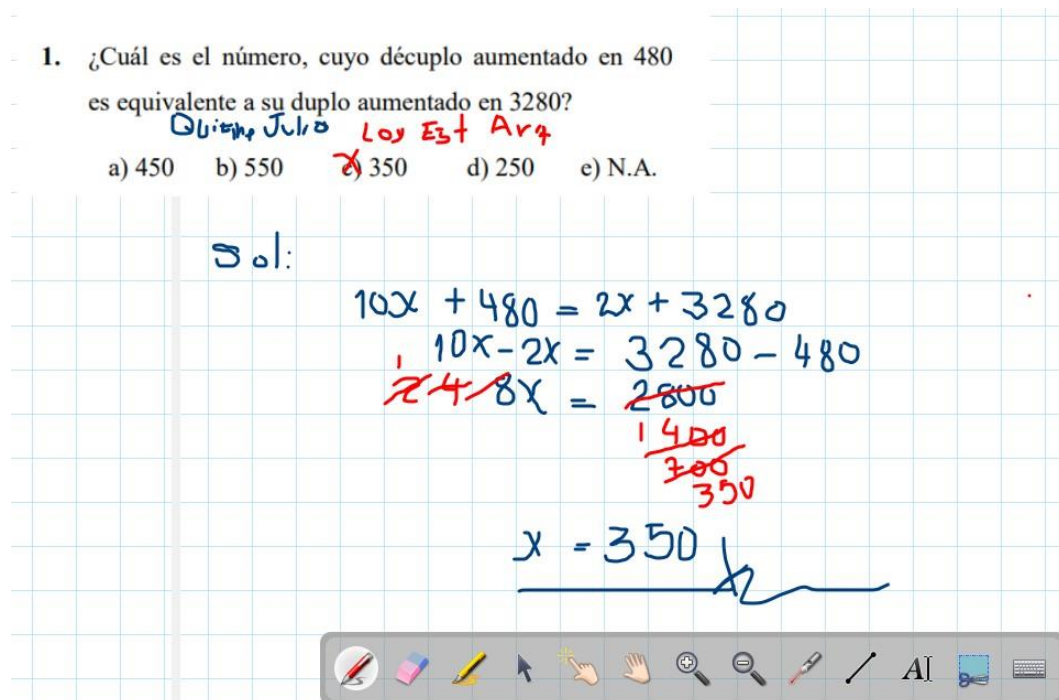 1. ¿Cuál es el número, cuyo décuplo aumentado en 480
es equivalente a su duplo aumentado en 3280?
Quispe Julio Los Est Arq
a) 450 b) 550 c) 350 d) 250 e) N.A.
Sol:
10x + 480 = 2x + 3280
10x - 2x = 3280 - 480
1
2 4 8x = 2800
1400
700
350
x = 350
AI